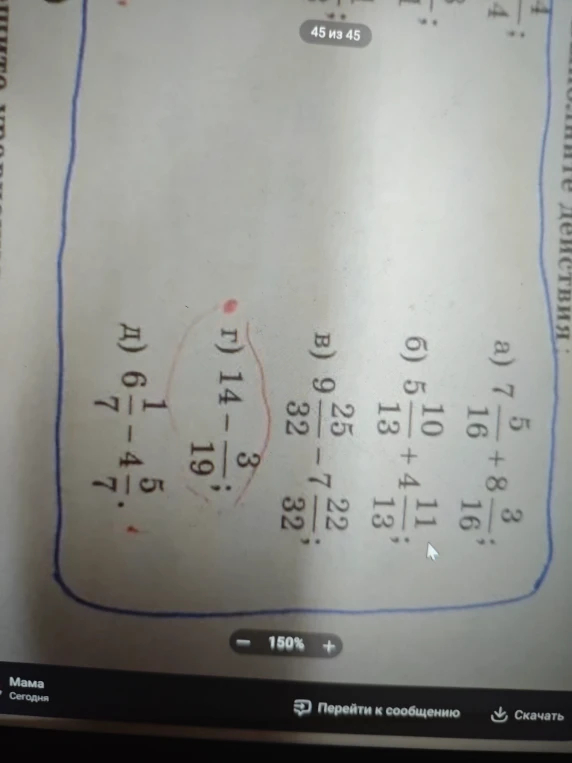 45 из 45
действия:
а) 7 5/16 + 8 3/16;
б) 5 10/13 + 4 11/13;
в) 9 25/32 − 7 22/32;
г) 14 − 3/19;
д) 6 1/7 − 4 5/7.
− 150% +
Мама
Сегодня
Перейти к сообщению
Скачать